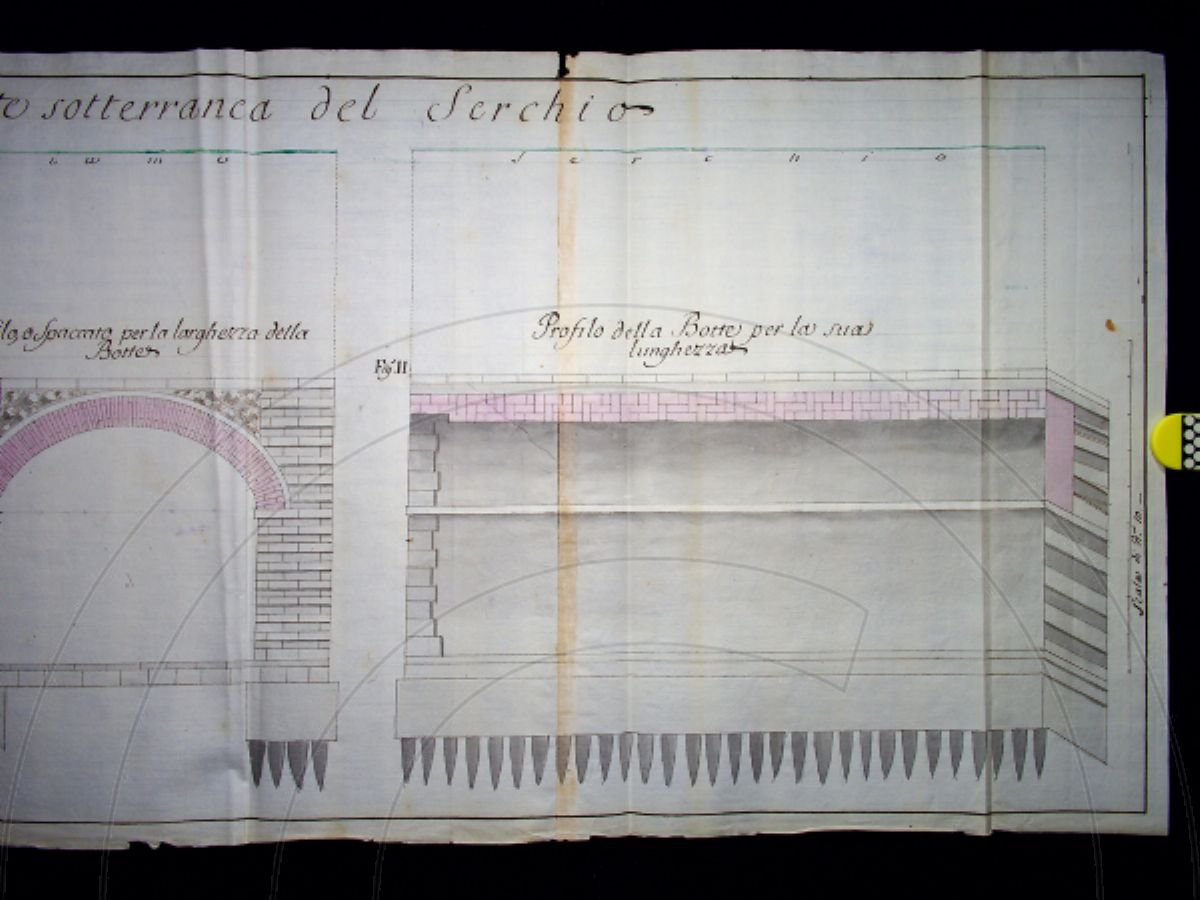 sotterranea del Serchio
Serchio
Spaccato per la larghezza della
Botte
Profilo della Botte per la sua
lunghezza
Fig. II
Scala di